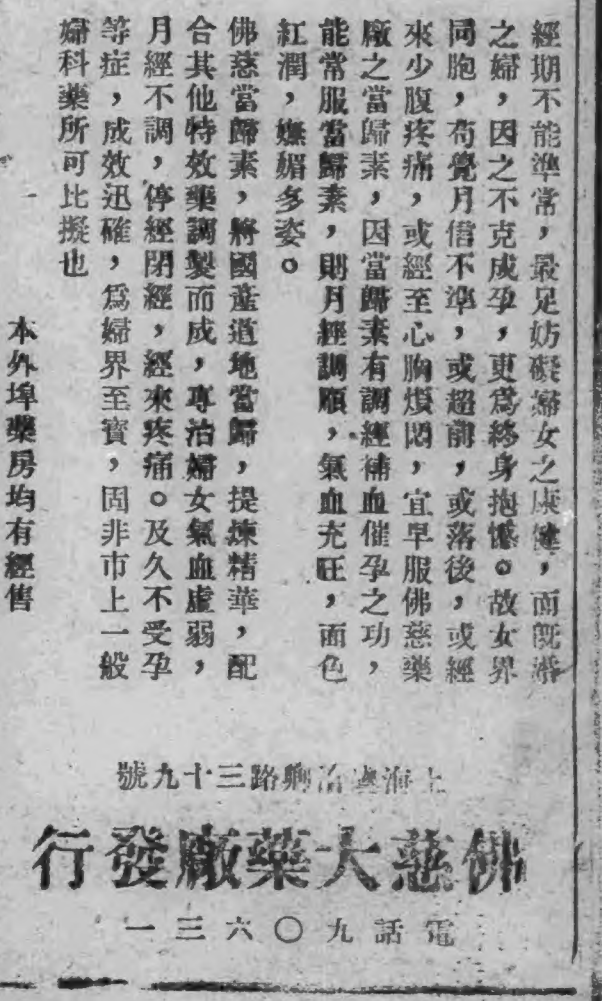 經期不能準常，最足妨礙婦女之康健，而既婚
之婦，因之不克成孕，更爲終身抱憾。故女界
同胞，苟覺月信不準，或超前，或落後，或經
來少腹疼痛，或經至心胸煩悶，宜早服佛慈藥
廠之當歸素，因當歸素有調經補血催孕之功，
能常服當歸素，則月經調順，氣血充旺，面色
紅潤，嫵媚多姿。
佛慈當歸素，將國產道地當歸，提煉精華，配
合其他特效藥調製而成，專治婦女氣血虛弱，
月經不調，停經閉經，經來疼痛。及久不受孕
等症，成效迅確，爲婦界至寶，固非市上一般
婦科藥所可比擬也
本外埠藥房均有經售
上海路三十九號
佛慈大藥廠發行
電話九〇六三一